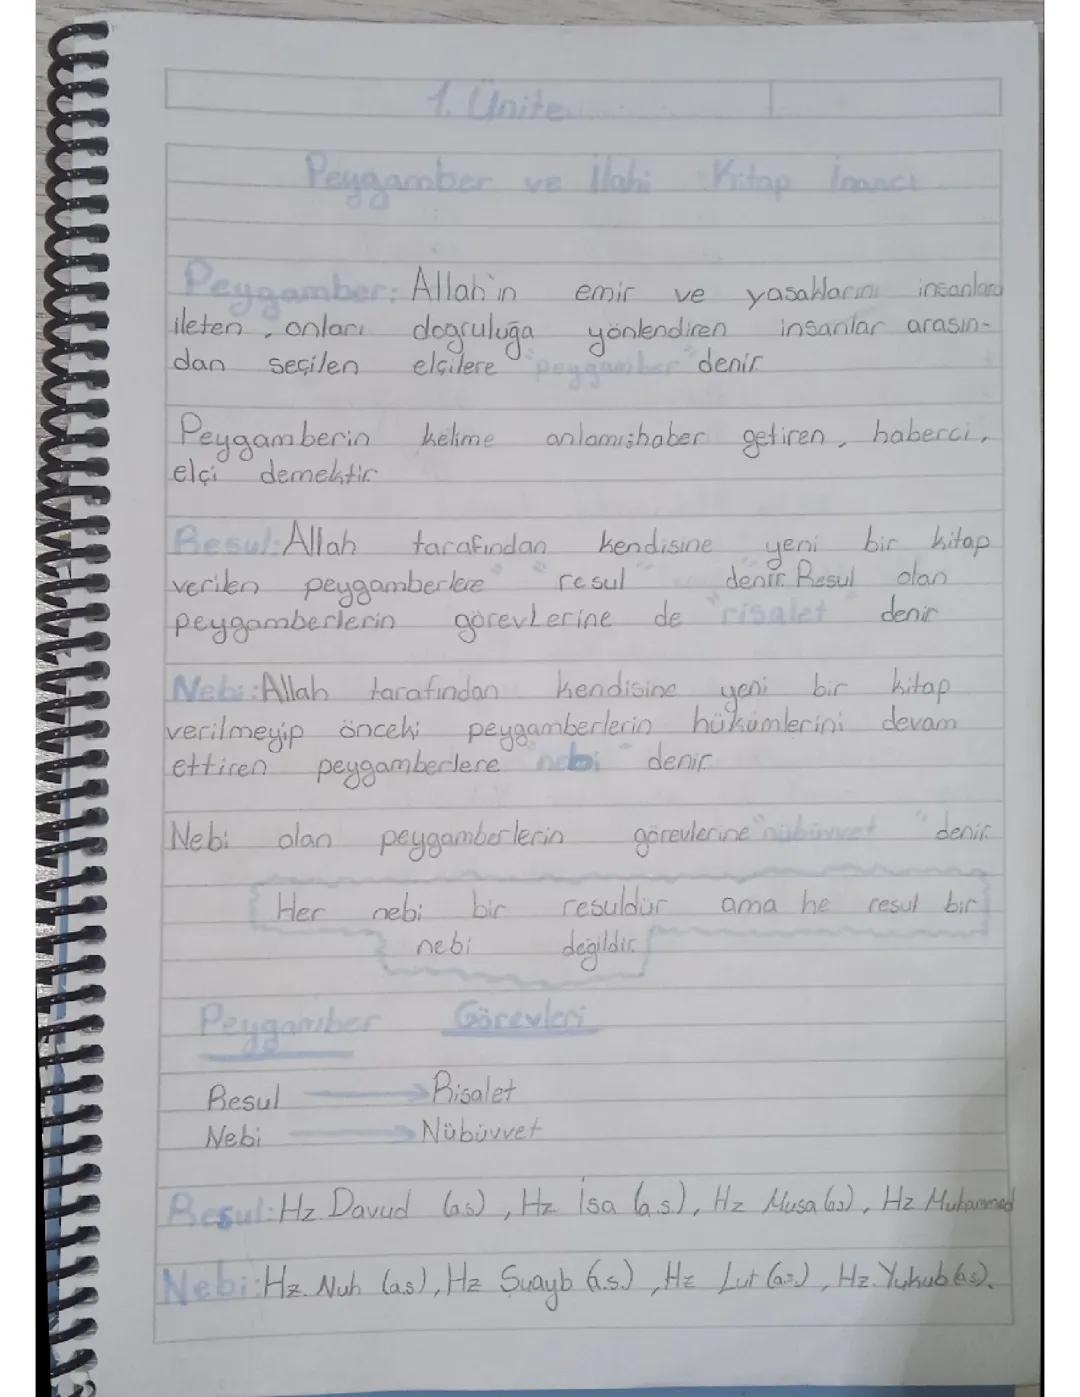 1. Ünite
Peygamber ve İlahi Kitap İnancı
Peygamber: Allah'ın emir ve yasaklarını insanlara
ileten, onları dogruluğa yönlendiren insanlar arasın-
dan seçilen elçilere "peygamber" denir.
Peygamberin kelime anlamı;haber getiren, haberci,
elçi demektir.
Resul: Allah tarafından kendisine yeni bir kitap
verilen peygamberlere "resul" denir. Resul olan
peygamberlerin görevlerine de "risalet" denir
Nebi: Allah tarafından kendisine yeni bir kitap
verilmeyip önceki peygamberlerin hükümlerini devam
ettiren peygamberlere "nebi" denir.
Nebi olan peygamberlerin görevlerine "nübüvvet" denir.
Her nebi bir resuldür ama he resul bir
nebi değildir.
Peygamber Görevleri
Resul → Risalet
Nebi → Nübüvvet
Resul: Hz. Davud (a.s), Hz İsa (a.s.), Hz Musa (as), Hz Muhammed
Nebi: Hz. Nuh (a.s), Hz Şuayb (a.s.), Hz Lut (a.s), Hz. Yakub (as).